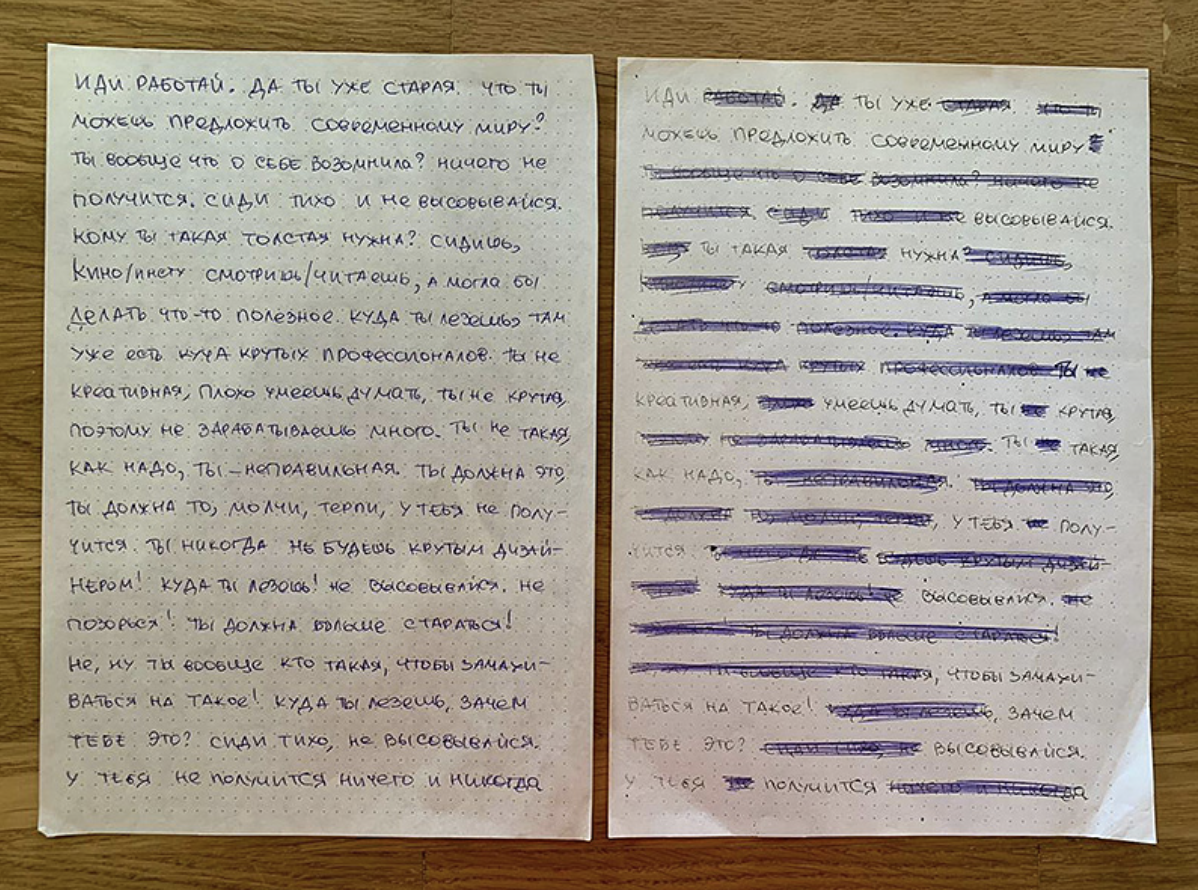 ИДИ РАБОТАЙ. ДА ТЫ УЖЕ СТАРАЯ. ЧТО ТЫ
МОЖЕШЬ ПРЕДЛОЖИТЬ СОВРЕМЕННОМУ МИРУ?
ТЫ ВООБЩЕ ЧТО О СЕБЕ ВОЗОМНИЛА? НИЧЕГО НЕ
ПОЛУЧИТСЯ. СИДИ ТИХО И НЕ ВЫСОВЫВАЙСЯ.
КОМУ ТЫ ТАКАЯ ТОЛСТАЯ НУЖНА? СИДИШЬ,
КИНО/ИНСТУ СМОТРИШЬ/ЧИТАЕШЬ, А МОГЛА БЫ
ДЕЛАТЬ ЧТО-ТО ПОЛЕЗНОЕ. КУДА ТЫ ЛЕЗЕШЬ? ТАМ
УЖЕ ЕСТЬ КУЧА КРУТЫХ ПРОФЕССИОНАЛОВ. ТЫ НЕ
КРЕАТИВНАЯ, ПЛОХО УМЕЕШЬ ДУМАТЬ, ТЫ НЕ КРУТАЯ,
ПОЭТОМУ НЕ ЗАРАБАТЫВАЕШЬ МНОГО. ТЫ НЕ ТАКАЯ,
КАК НАДО, ТЫ – НЕПРАВИЛЬНАЯ. ТЫ ДОЛЖНА ЭТО,
ТЫ ДОЛЖНА ТО, МОЛЧИ, ТЕРПИ, У ТЕБЯ НЕ ПОЛУ-
ЧИТСЯ. ТЫ НИКОГДА НЕ БУДЕШЬ КРУТЫМ ДИЗАЙ-
НЕРОМ! КУДА ТЫ ЛЕЗЕШЬ! НЕ ВЫСОВЫВАЙСЯ. НЕ
ПОЗОРЬСЯ! ТЫ ДОЛЖНА БОЛЬШЕ СТАРАТЬСЯ!
НЕ, НУ ТЫ ВООБЩЕ КТО ТАКАЯ, ЧТОБЫ ЗАМАХИ-
ВАТЬСЯ НА ТАКОЕ! КУДА ТЫ ЛЕЗЕШЬ, ЗАЧЕМ
ТЕБЕ ЭТО? СИДИ ТИХО, НЕ ВЫСОВЫВАЙСЯ.
У ТЕБЯ НЕ ПОЛУЧИТСЯ НИЧЕГО И НИКОГДА
ИДИ РАБОТАЙ. ДА ТЫ УЖЕ СТАРАЯ. ЧТО ТЫ
МОЖЕШЬ ПРЕДЛОЖИТЬ СОВРЕМЕННОМУ МИРУ
ТЫ ВООБЩЕ ЧТО О СЕБЕ ВОЗОМНИЛА? НИЧЕГО НЕ
ПОЛУЧИТСЯ. СИДИ ТИХО И НЕ ВЫСОВЫВАЙСЯ.
ТЫ ТАКАЯ ТОЛСТАЯ НУЖНА? СИДИШЬ,
СМОТРИШЬ/ЧИТАЕШЬ, А МОГЛА БЫ
ПОЛЕЗНОЕ. КУДА ТЫ ЛЕЗЕШЬ? ТАМ
КРУТЫХ ПРОФЕССИОНАЛОВ. ТЫ НЕ
КРЕАТИВНАЯ, ПЛОХО УМЕЕШЬ ДУМАТЬ, ТЫ НЕ КРУТАЯ,
НЕ ТЫ НЕ ТАКАЯ,
КАК НАДО, ТЫ НЕПРАВИЛЬНАЯ. ТЫ ДОЛЖНА ЭТО,
У ТЕБЯ НЕ ПОЛУ-
ЧИТСЯ. КРУТЫМ ДИЗАЙ-
КУДА ТЫ ЛЕЗЕШЬ! НЕ ВЫСОВЫВАЙСЯ. НЕ
ТЫ ДОЛЖНА БОЛЬШЕ СТАРАТЬСЯ!
ТЫ ВООБЩЕ КТО ТАКАЯ, ЧТОБЫ ЗАМАХИ-
ВАТЬСЯ НА ТАКОЕ! КУДА ТЫ ЛЕЗЕШЬ, ЗАЧЕМ
ТЕБЕ ЭТО? СИДИ ТИХО, НЕ ВЫСОВЫВАЙСЯ.
У ТЕБЯ НЕ ПОЛУЧИТСЯ НИЧЕГО И НИКОГДА